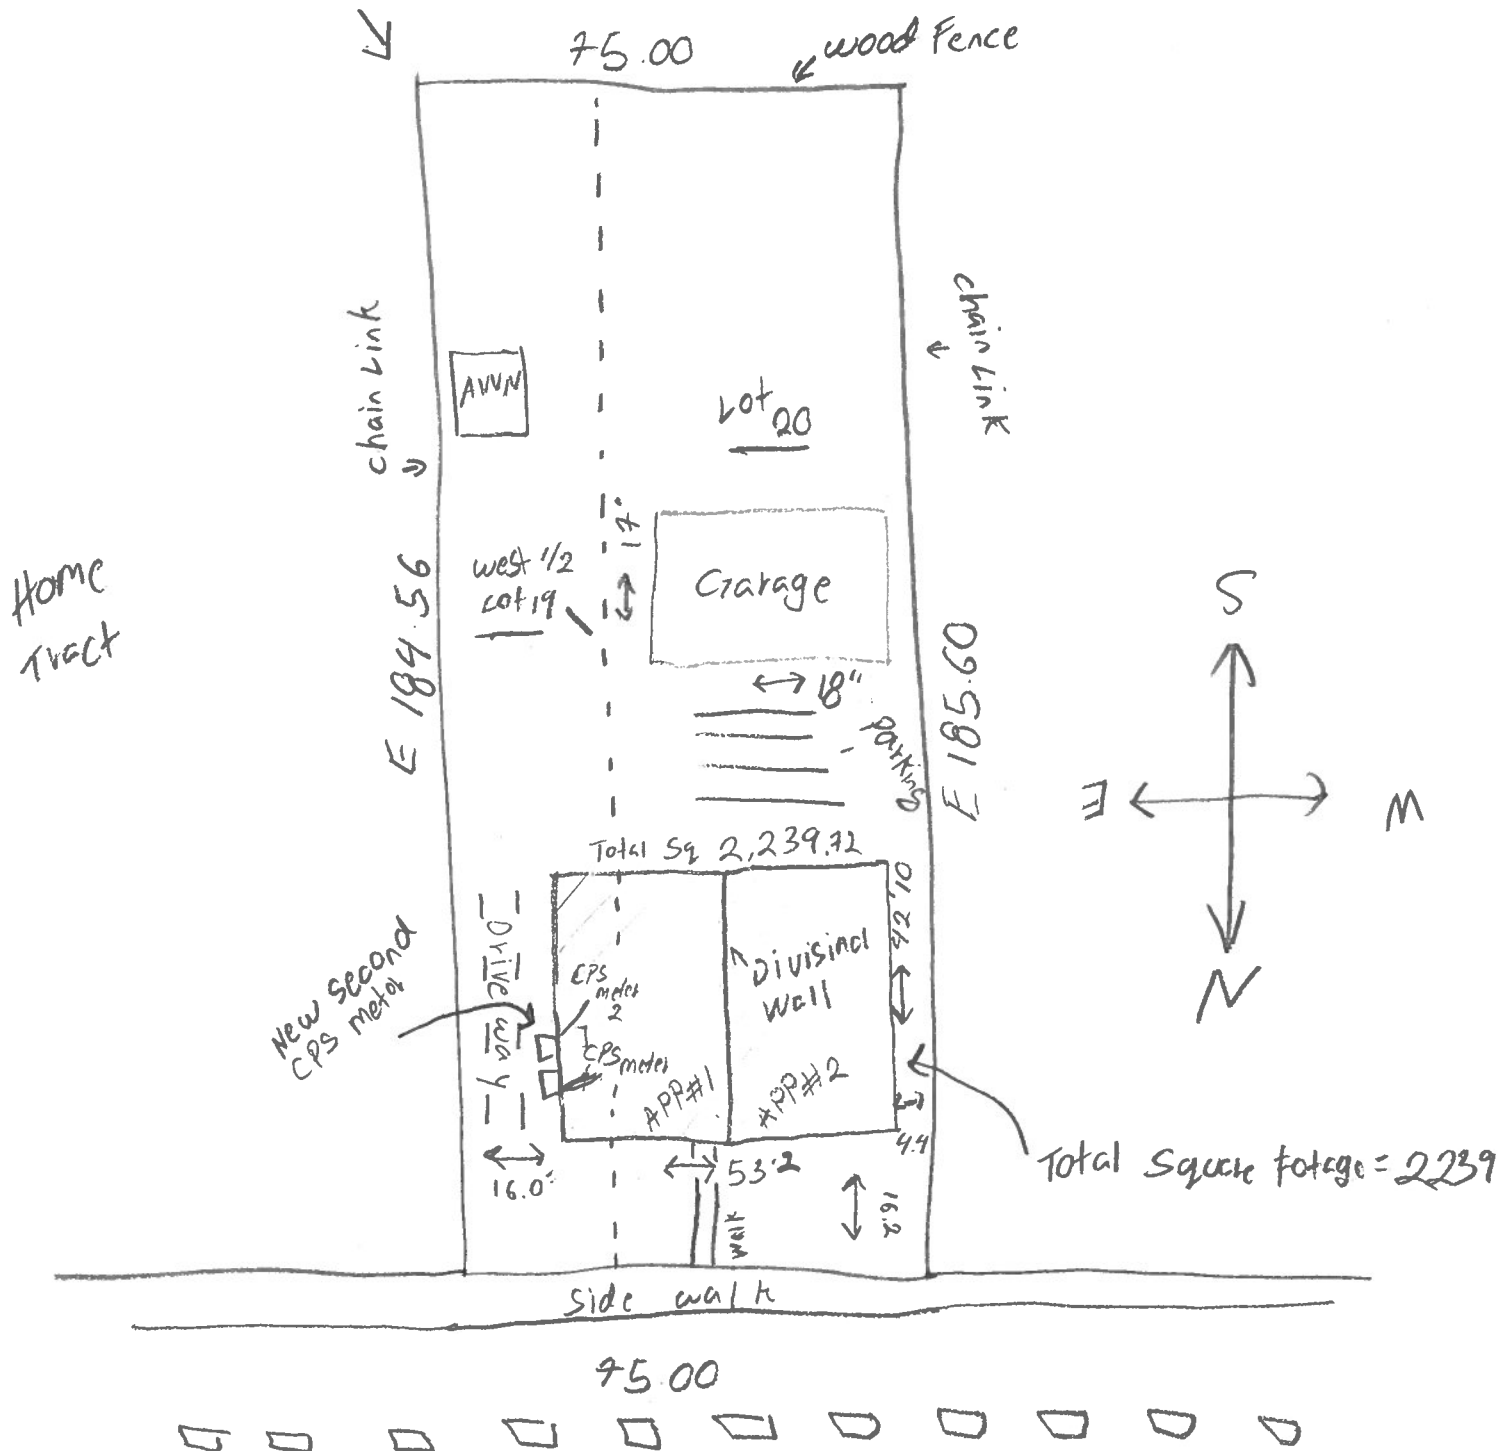 75.00
wood Fence
chain Link
chain Link
AWN
Lot 20
17"
west 1/2
Lot 19
Garage
Home
Tract
E 184.56
18"
parking
E 185.60
S
E
W
N
Total Sq 2,239.72
42'.10
Drive way
New second
CPS metor
CPS
meter
2
CPS meter
Divisinal
Wall
APP#1
APP#2
4.4
Total Square fotage = 2239
16.0"
53.2
16.2
walk
Side walk
75.00